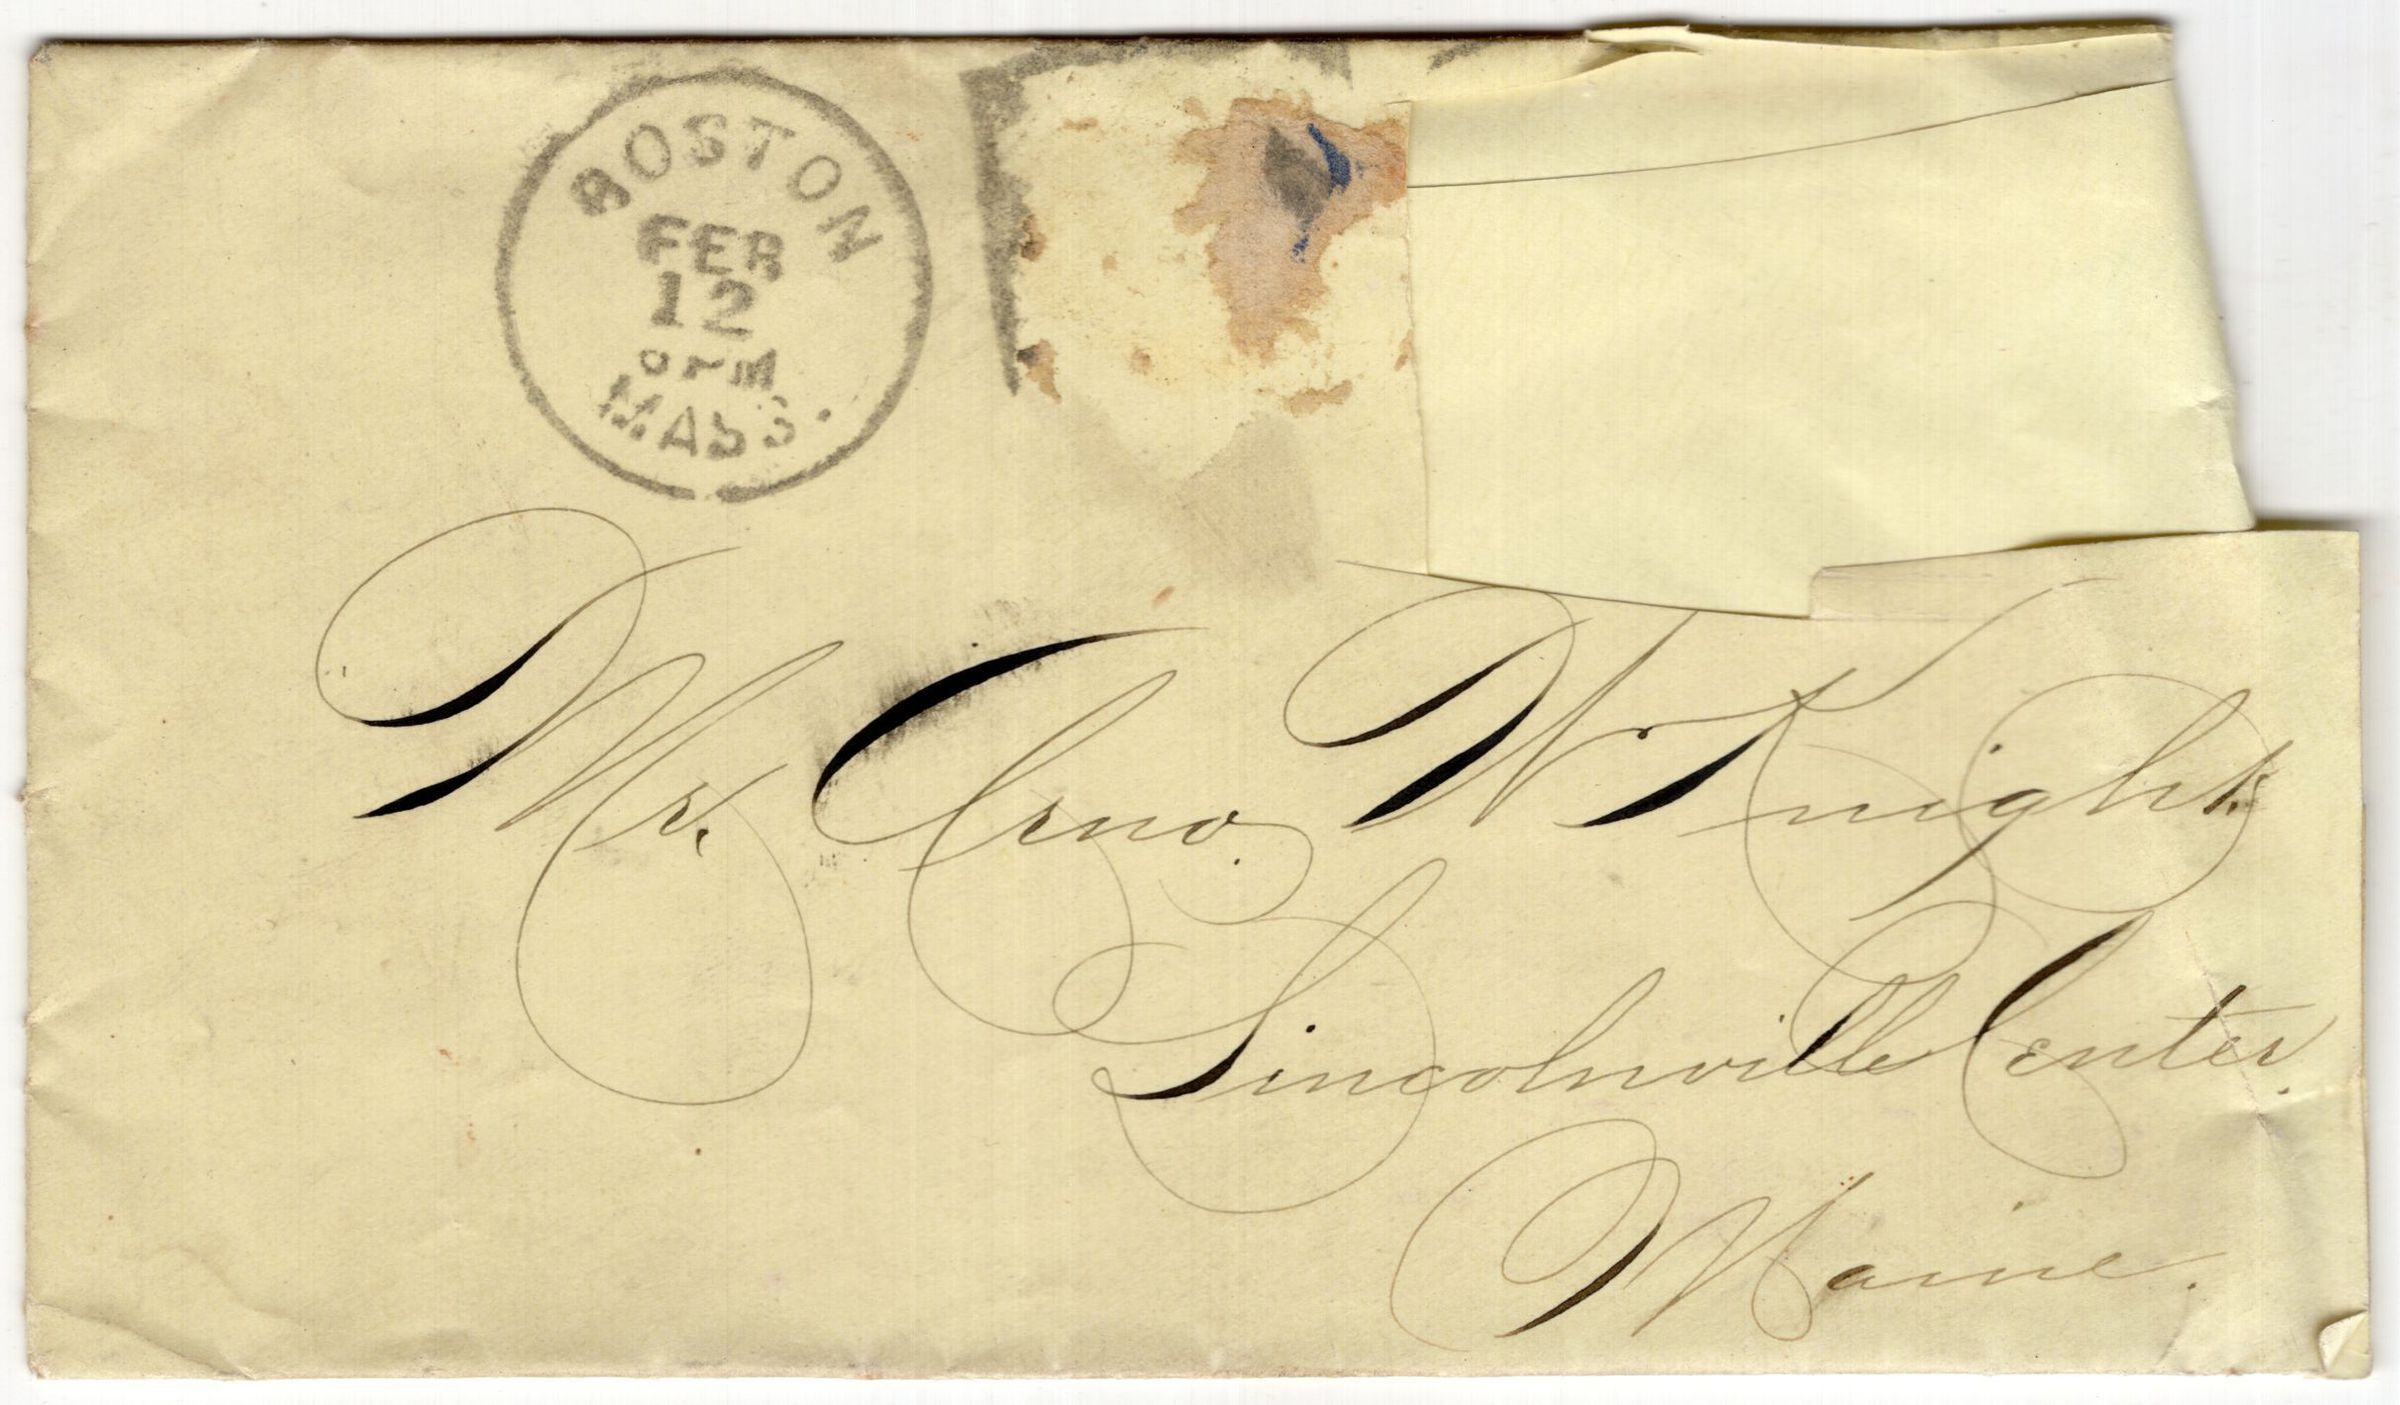 BOSTON
FEB
12
PM
MASS.
Mr. Arno. W Knight.
Lincolnville Center.
Maine.